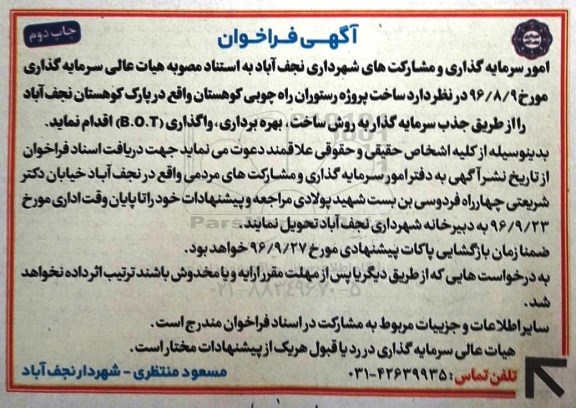 چاپ دوم
آگهی فراخوان
امور سرمایه گذاری و مشارکت های شهرداری نجف آباد به استناد مصوبه هیات عالی سرمایه گذاری
مورخ ۹۶/۸/۹ در نظر دارد ساخت پروژه رستوران راه چوبی کوهستان واقع در پارک کوهستان نجف آباد
را از طریق جذب سرمایه گذار به روش ساخت ، بهره برداری ، واگذاری (B.O.T) اقدام نماید.
بدینوسیله از کلیه اشخاص حقیقی و حقوقی علاقمند دعوت می نماید جهت دریافت اسناد فراخوان
از تاریخ نشر آگهی به دفتر امور سرمایه گذاری و مشارکت های مردمی واقع در نجف آباد خیابان دکتر
شریعتی چهارراه فردوسی بن بست شهید پولادی مراجعه و پیشنهادات خود را تا پایان وقت اداری مورخ
۹۶/۹/۲۳ به دبیرخانه شهرداری نجف آباد تحویل نمایند.
ضمنا زمان بازگشایی پاکات پیشنهادی مورخ ۹۶/۹/۲۷ خواهد بود.
به درخواست هایی که از طریق دیگر یا پس از مهلت مقرر ارایه و یا مخدوش باشند ترتیب اثر داده نخواهد
شد.
سایر اطلاعات و جزییات مربوط به مشارکت در اسناد فراخوان مندرج است.
هیات عالی سرمایه گذاری در رد یا قبول هر یک از پیشنهادات مختار است.
تلفن تماس : ۰۳۱-۴۲۶۳۹۹۳۵
مسعود منتظری - شهردار نجف آباد
۰۲۱-۸۸۳۴۹۶۷۰-۵